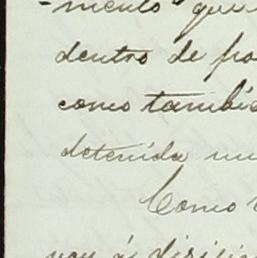 -mento que
dentro de po
como tambié
detenida un
Como
voy á dirigir